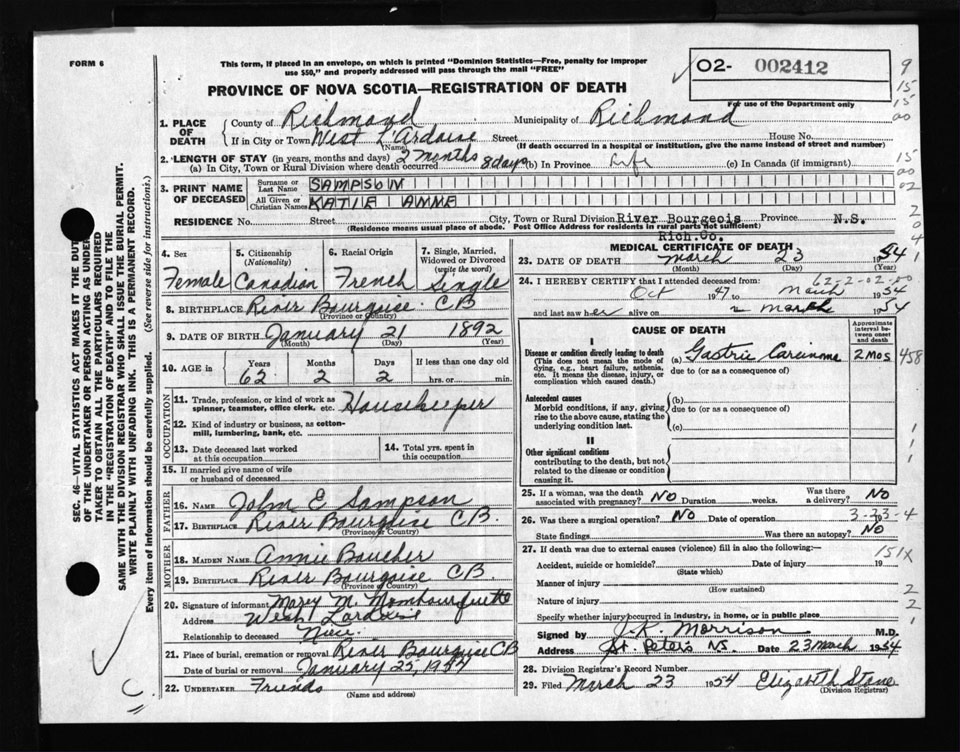 FORM 6
This form, if placed in an envelope, on which is printed "Dominion Statistics—Free, penalty for improper
use $50," and properly addressed will pass through the mail "FREE"
02- 002412
For use of the Department only
PROVINCE OF NOVA SCOTIA—REGISTRATION OF DEATH
1. PLACE OF DEATH County of Richmond Municipality of Richmond
If in City or Town West L'Ardoise Street House No.
(Name) (If death occurred in a hospital or institution, give the name instead of street and number)
2. LENGTH OF STAY (in years, months and days) 2 months 8 days
(a) In City, Town or Rural Division where death occurred (b) In Province Life (c) In Canada (if immigrant)
3. PRINT NAME OF DECEASED Surname or Last Name SAMPSON
All Given or Christian Names KATIE ANNE
RESIDENCE No. Street City, Town or Rural Division River Bourgeois Province N.S.
(Residence means usual place of abode. Post Office Address for residents in rural parts not sufficient)
Rich.Co.
4. Sex Female
5. Citizenship (Nationality) Canadian
6. Racial Origin French
7. Single, Married, Widowed or Divorced (write the word) Single
8. BIRTHPLACE River Bourgoise CB
(Province or Country)
9. DATE OF BIRTH January 21 1892
(Month) (Day) (Year)
10. AGE in Years 62 Months 2 Days 2 If less than one day old
hrs. or min.
OCCUPATION
11. Trade, profession, or kind of work as spinner, teamster, office clerk, etc. Housekeeper
12. Kind of industry or business, as cotton-mill, lumbering, bank, etc.
13. Date deceased last worked at this occupation
14. Total yrs. spent in this occupation
15. If married give name of wife or husband of deceased
FATHER
16. NAME John E Sampson
17. BIRTHPLACE River Bourgoise CB
(Province or Country)
MOTHER
18. MAIDEN NAME Annie Boucher
19. BIRTHPLACE River Bourgoise CB
(Province or Country)
20. Signature of informant Mary M. Mombourquette
Address West Lardoise
Relationship to deceased Niece
21. Place of burial, cremation or removal River Bourgoise CB
Date of burial or removal January 25, 1954
22. UNDERTAKER Friends
(Name and address)
MEDICAL CERTIFICATE OF DEATH
23. DATE OF DEATH March 23 1954
(Month) (Day) (Year)
24. I HEREBY CERTIFY that I attended deceased from: 62-2-02-00
Oct 1947 to March 1954
and last saw her alive on 2 March 1954
CAUSE OF DEATH
Approximate interval between onset and death
I
Disease or condition directly leading to death (a) Gastric Carcinoma 2 mos 458
(This does not mean the mode of dying, e.g., heart failure, asthenia, etc. It means the disease, injury, or complication which caused death.)
due to (or as a consequence of)
Antecedent causes (b)
Morbid conditions, if any, giving rise to the above cause, stating the underlying condition last.
due to (or as a consequence of)
(c)
II
Other significant conditions
contributing to the death, but not related to the disease or condition causing it.
25. If a woman, was the death associated with pregnancy? NO Duration weeks. Was there a delivery? NO
26. Was there a surgical operation? NO Date of operation 3-23-4
State findings Was there an autopsy? NO
27. If death was due to external causes (violence) fill in also the following:—
151X
Accident, suicide or homicide? Date of injury 19
(State which)
Manner of injury
(How sustained)
Nature of injury
Specify whether injury occurred in industry, in home, or in public place
Signed by J.K. Morrison M.D.
Address St. Peters NS. Date 23 March 1954
28. Division Registrar's Record Number
29. Filed March 23 1954 Elizabeth Stone
(Division Registrar)
SEC. 46—VITAL STATISTICS ACT MAKES IT THE DUTY
OF THE UNDERTAKER OR PERSON ACTING AS UNDER-
TAKER TO OBTAIN ALL THE PARTICULARS REQUIRED
IN THE "REGISTRATION OF DEATH" AND TO FILE THE
SAME WITH THE DIVISION REGISTRAR WHO SHALL ISSUE THE BURIAL PERMIT.
WRITE PLAINLY WITH UNFADING INK. THIS IS A PERMANENT RECORD.
Every item of information should be carefully supplied. (See reverse side for instructions.)